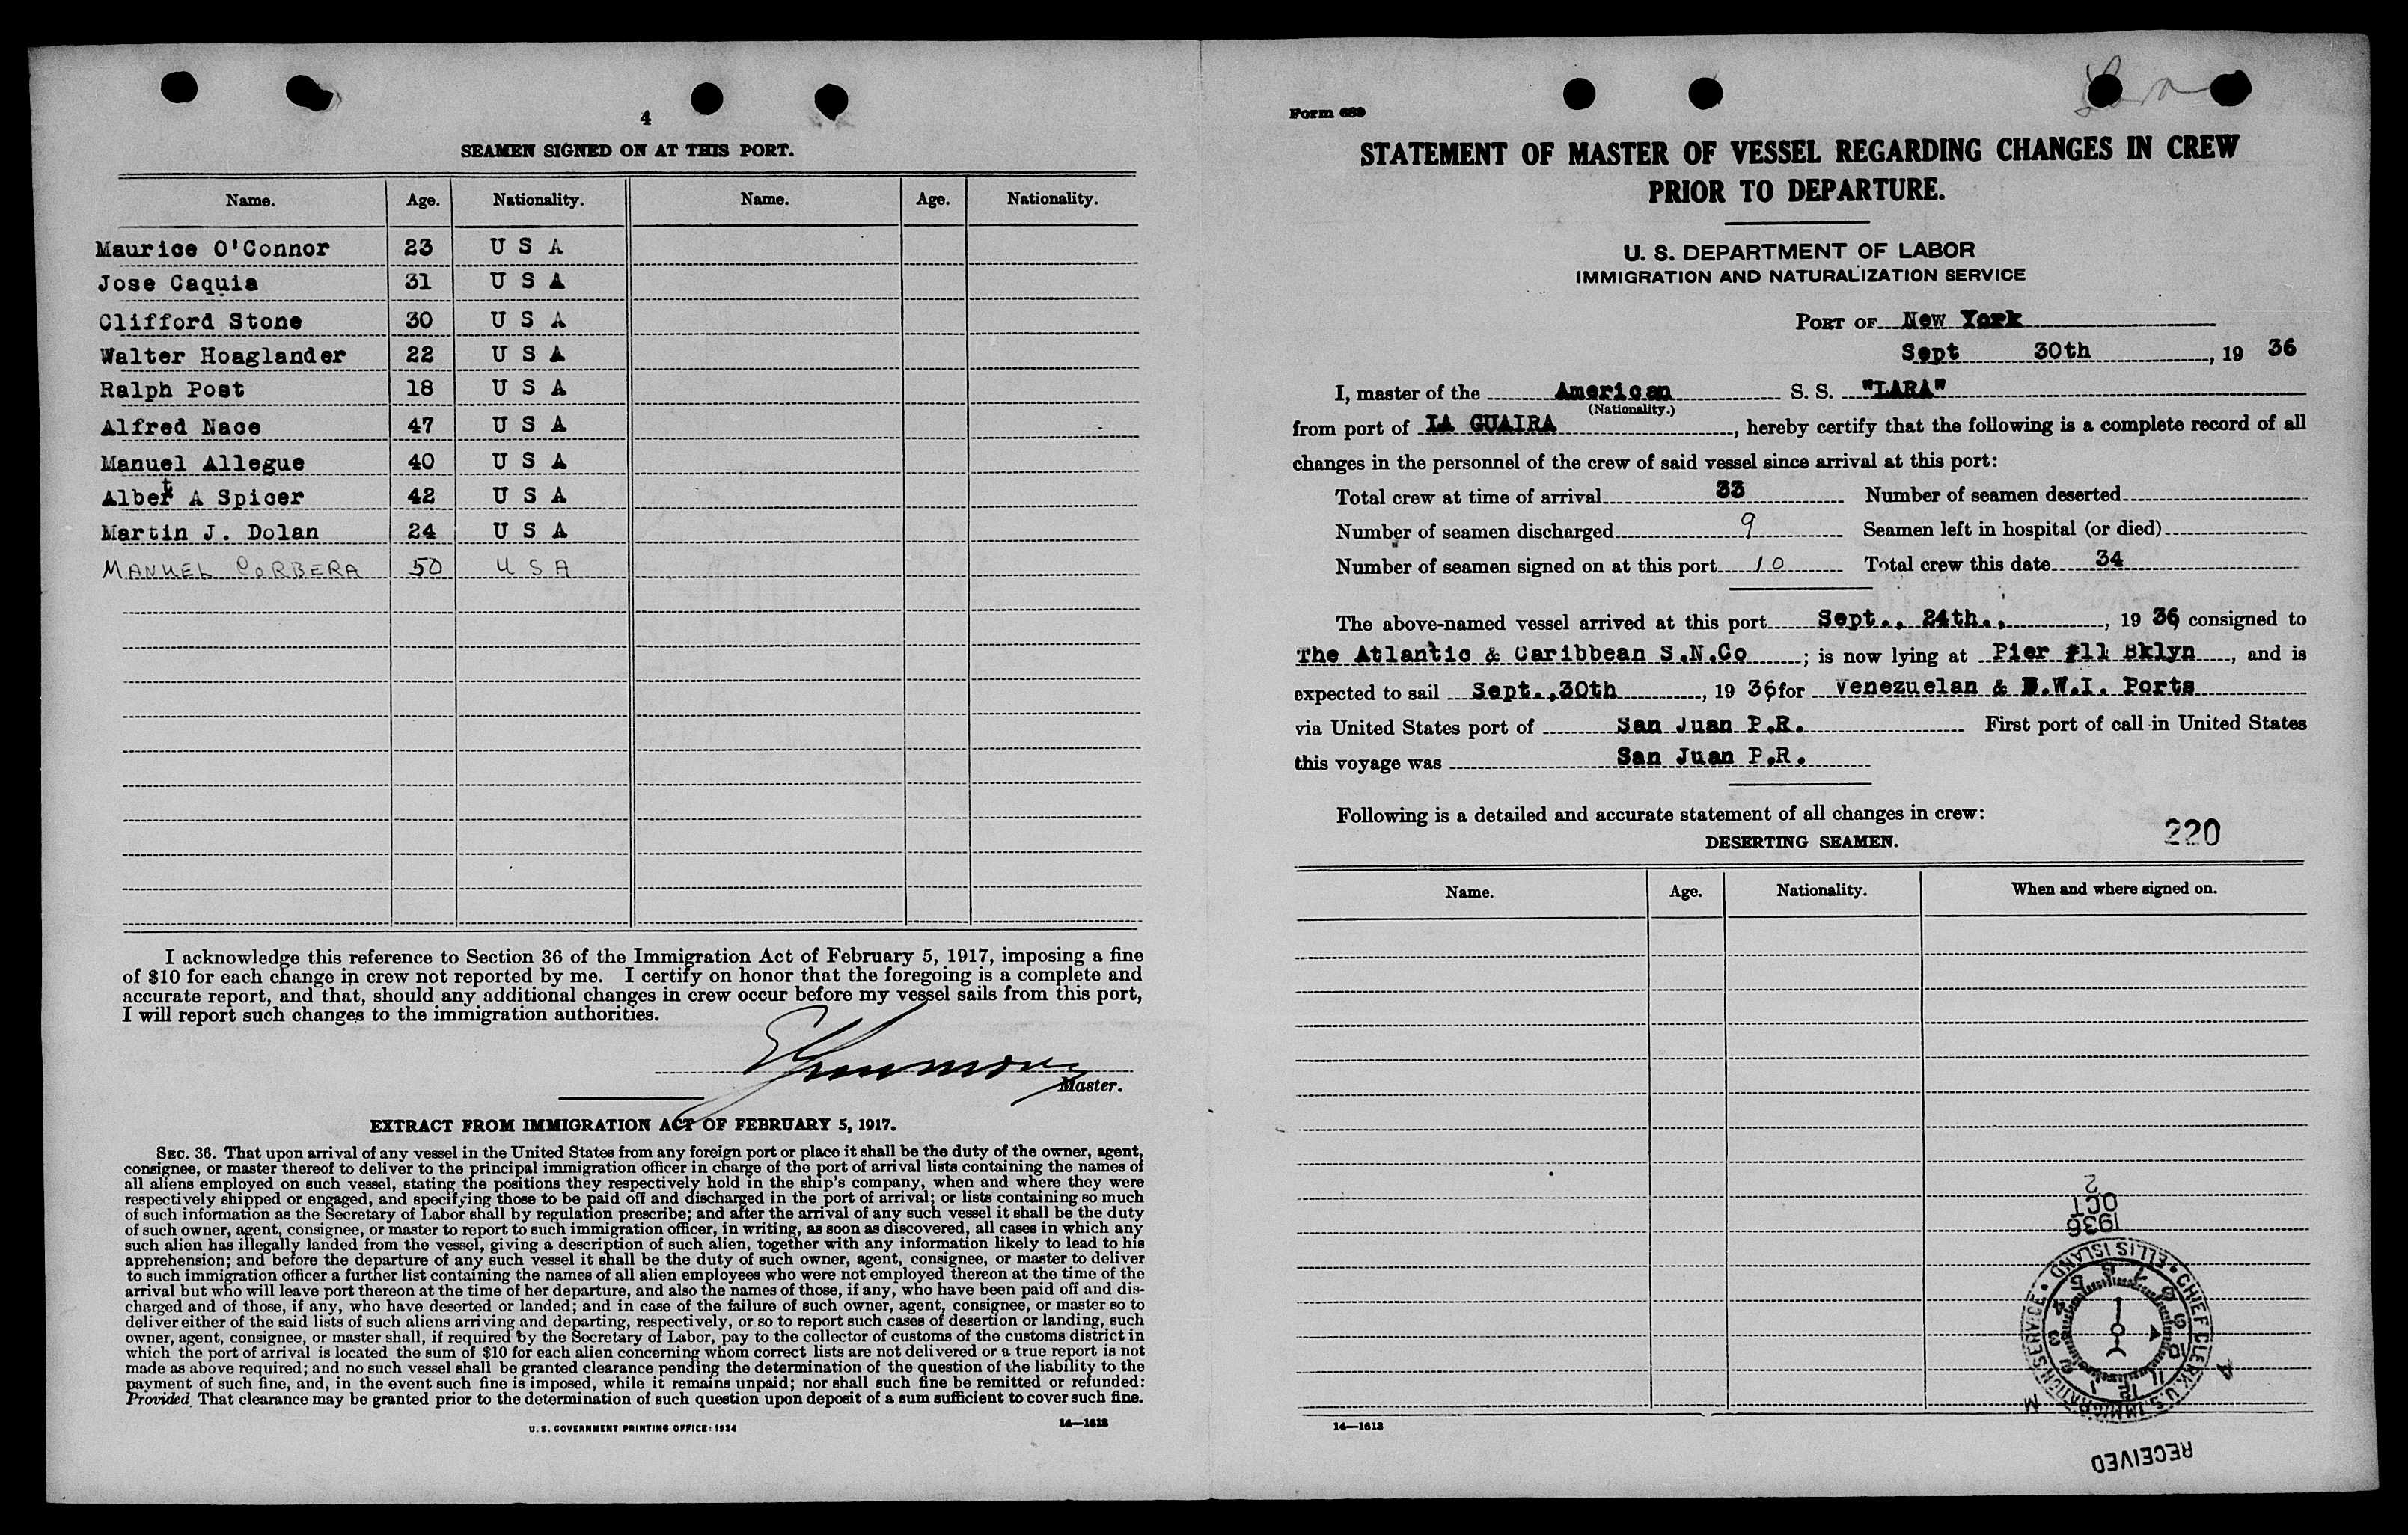 4
SEAMEN SIGNED ON AT THIS PORT.
Name. Age. Nationality. Name. Age. Nationality.
Maurice O'Connor 23 U S A
Jose Caquia 31 U S A
Clifford Stone 30 U S A
Walter Hoaglander 22 U S A
Ralph Post 18 U S A
Alfred Nace 47 U S A
Manuel Allegue 40 U S A
Albert A Spicer 42 U S A
Martin J. Dolan 24 U S A
MANUEL CORBERA 50 U S A
I acknowledge this reference to Section 36 of the Immigration Act of February 5, 1917, imposing a fine
of $10 for each change in crew not reported by me. I certify on honor that the foregoing is a complete and
accurate report, and that, should any additional changes in crew occur before my vessel sails from this port,
I will report such changes to the immigration authorities.
Master.
EXTRACT FROM IMMIGRATION ACT OF FEBRUARY 5, 1917.
SEC. 36. That upon arrival of any vessel in the United States from any foreign port or place it shall be the duty of the owner, agent,
consignee, or master thereof to deliver to the principal immigration officer in charge of the port of arrival lists containing the names of
all aliens employed on such vessel, stating the positions they respectively hold in the ship's company, when and where they were
respectively shipped or engaged, and specifying those to be paid off and discharged in the port of arrival; or lists containing so much
of such information as the Secretary of Labor shall by regulation prescribe; and after the arrival of any such vessel it shall be the duty
of such owner, agent, consignee, or master to report to such immigration officer, in writing, as soon as discovered, all cases in which any
such alien has illegally landed from the vessel, giving a description of such alien, together with any information likely to lead to his
apprehension; and before the departure of any such vessel it shall be the duty of such owner, agent, consignee, or master to deliver
to such immigration officer a further list containing the names of all alien employees who were not employed thereon at the time of the
arrival but who will leave port thereon at the time of her departure, and also the names of those, if any, who have been paid off and dis-
charged and of those, if any, who have deserted or landed; and in case of the failure of such owner, agent, consignee, or master so to
deliver either of the said lists of such aliens arriving and departing, respectively, or so to report such cases of desertion or landing, such
owner, agent, consignee, or master shall, if required by the Secretary of Labor, pay to the collector of customs of the customs district in
which the port of arrival is located the sum of $10 for each alien concerning whom correct lists are not delivered or a true report is not
made as above required; and no such vessel shall be granted clearance pending the determination of the question of the liability to the
payment of such fine, and, in the event such fine is imposed, while it remains unpaid; nor shall such fine be remitted or refunded:
Provided, That clearance may be granted prior to the determination of such question upon deposit of a sum sufficient to cover such fine.
U. S. GOVERNMENT PRINTING OFFICE: 1934 14—1613
Lara
Form 689
STATEMENT OF MASTER OF VESSEL REGARDING CHANGES IN CREW
PRIOR TO DEPARTURE.
U. S. DEPARTMENT OF LABOR
IMMIGRATION AND NATURALIZATION SERVICE
PORT OF New York
Sept 30th, 19 36
I, master of the American S. S. "LARA"
(Nationality.)
from port of LA GUAIRA, hereby certify that the following is a complete record of all
changes in the personnel of the crew of said vessel since arrival at this port:
Total crew at time of arrival 33 Number of seamen deserted
Number of seamen discharged 9 Seamen left in hospital (or died)
Number of seamen signed on at this port 10 Total crew this date 34
The above-named vessel arrived at this port Sept., 24th., , 19 36 consigned to
The Atlantic & Caribbean S.N.Co ; is now lying at Pier #11 Bklyn , and is
expected to sail Sept.,30th , 19 36 for Venezuelan & D.W.I. Ports
via United States port of San Juan P.R. First port of call in United States
this voyage was San Juan P.R.
Following is a detailed and accurate statement of all changes in crew:
220
DESERTING SEAMEN.
Name. Age. Nationality. When and where signed on.
1936
OCT
2
CHIEF CLERK, U.S. IMMIGRATION SERVICE • ELLIS ISLAND
RECEIVED
14—1613